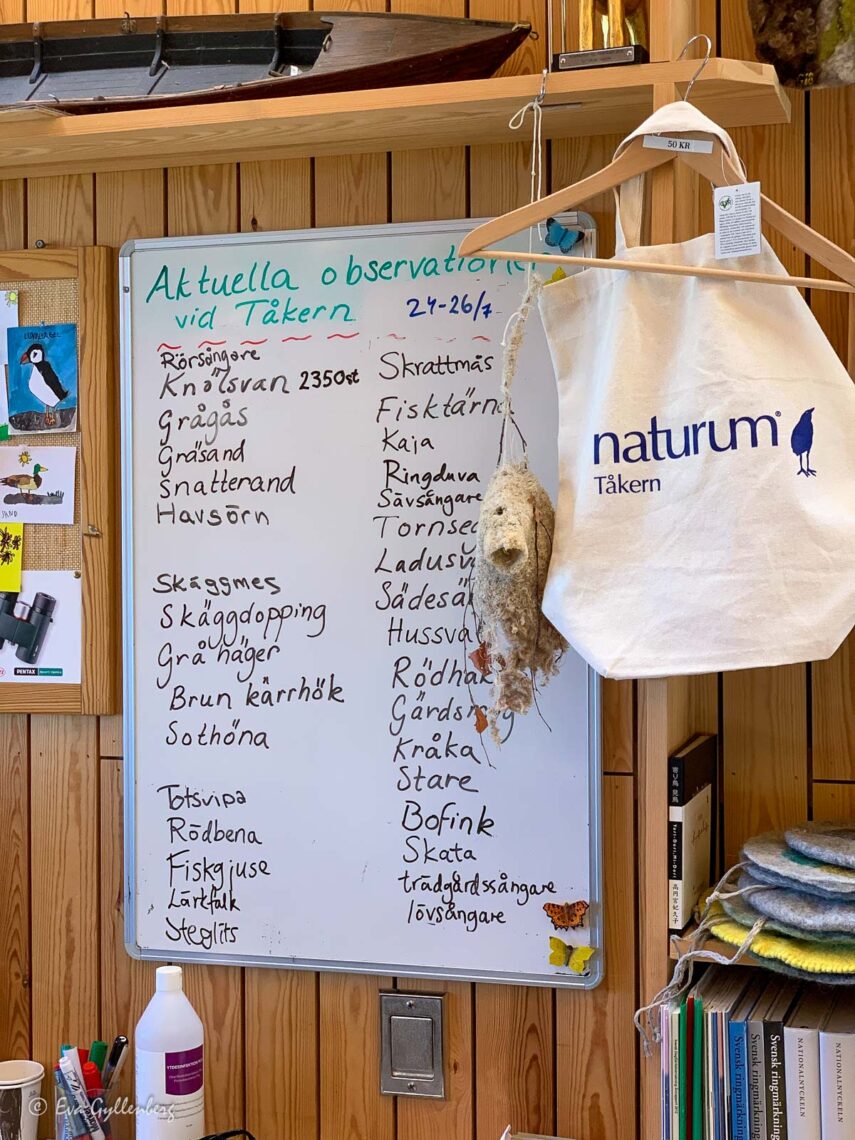 50 KR
Aktuella observatione
vid Tåkern 24-26/7
Rörsångare
Knölsvan 2350st
Grågås
Gräsand
Snatterand
Havsörn
Skäggmes
Skäggdopping
Grå häger
Brun kärrhök
Sothöna
Totsvipa
Rödbena
Fiskgjuse
Lärkfalk
Steglits
Skrattmås
Fisktärn
Kaja
Ringduva
Sävsångare
Tornse
Ladusv
Sädesä
Hussva
Rödhak
Gärdsm g
Kråka
Stare
Bofink
Skata
trädgårdssångare
lövsångare
naturum®
Tåkern
LUNNEFÅGEL
SAND
PENTAX
YTDESINFEKTION
Svensk ringmärkning
Svensk ringmärkning
Svensk ringmärkning
NATIONALNYCKELN
NATIONALNYCKELN
© Eva Gyllenberg